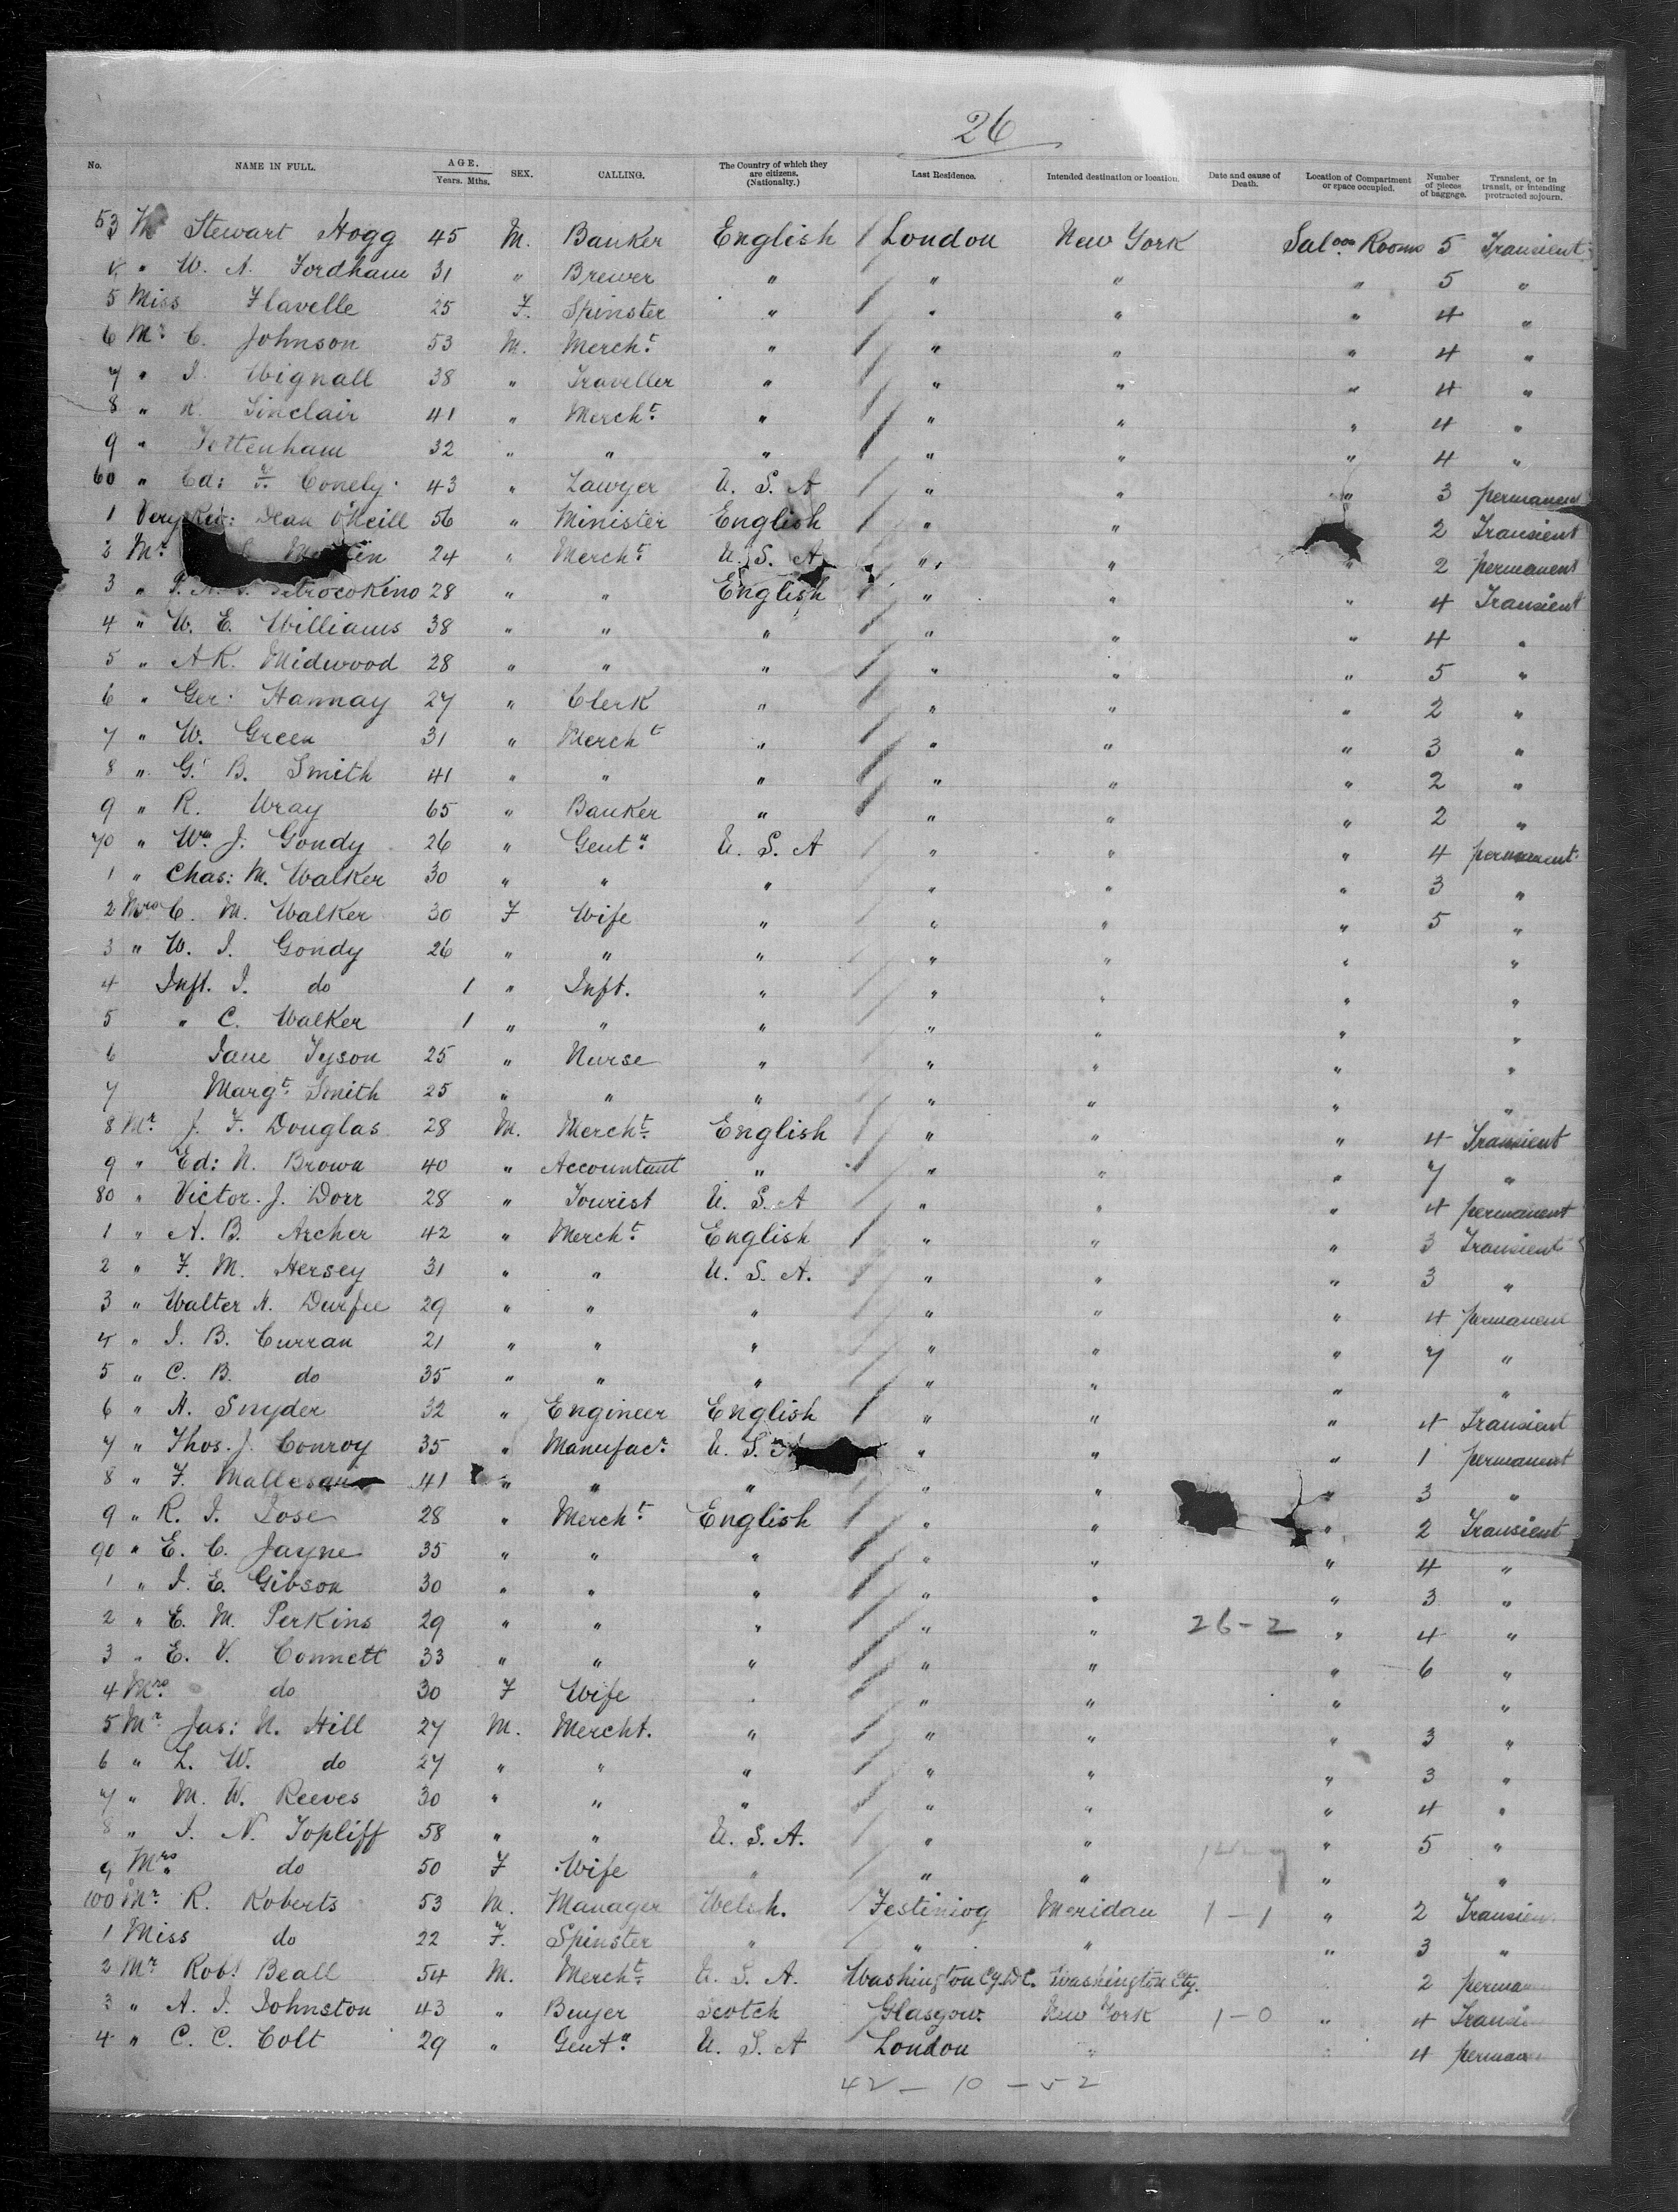 26
No. NAME IN FULL. AGE. Years. Mths. SEX. CALLING. The Country of which they are citizens. (Nationality.) Last Residence. Intended destination or location. Date and cause of Death. Location of Compartment or space occupied. Number of pieces of baggage. Transient, or in transit, or intending protracted sojourn.
53 Mr Stewart Hogg 45 M. Banker English / London New York Saloon Rooms 5 Transient
" W. A. Fordham 31 " Brewer " / " " " 5 "
5 Miss Flavelle 25 F. Spinster " / " " " 4 "
6 Mr. C. Johnson 53 M. Mercht. " / " " " 4 "
7 " I. Wignall 38 " Traveller " / " " " 4 "
8 " R. Sinclair 41 " Mercht. " / " " " 4 "
9 " Tottenham 32 " " " / " " " 4 "
60 " Ed: F. Conely 43 " Lawyer U. S. A / " " " 3 permanent
1 Very Rev: Dean O'Neill 56 " Minister English / " " 2 Transient
2 Mr. 24 " Mercht. U. S. A / " " " 2 permanent
3 " 28 " " English / " " " 4 Transient
4 " W. E. Williams 38 " " " / " " " 4 "
5 " A K. Midwood 28 " " " / " " " 5 "
6 " Ger: Hannay 27 " Clerk " / " " " 2 "
7 " W. Green 31 " Mercht " / " " " 3 "
8 " G. B. Smith 41 " " " / " " " 2 "
9 " R. Wray 65 " Banker " / " " " 2 "
70 " Wm. J. Gondy 26 " Gentn. U. S. A / " " " 4 permanent
1 " Chas: M. Walker 30 " " " / " " " 3 "
2 Mrs C. M. Walker 30 F Wife " / " " " 5 "
3 " W. I. Gondy 26 " " " / " " " "
4 Inft. I. do 1 " Inft. " / " " " "
5 " C. Walker 1 " " " / " " " "
6 Jane Tyson 25 " Nurse " / " " " "
7 Margt. Smith 25 " " " / " " " "
8 Mr J. F. Douglas 28 M. Mercht. English / " " " 4 Transient
9 " Ed: N. Brown 40 " Accountant " / " " " 7 "
80 " Victor. J. Dorr 28 " Tourist U. S. A / " " " 4 permanent
1 " A. B. Archer 42 " Mercht. English / " " " 3 Transient
2 " F. M. Hersey 31 " " U. S. A. / " " " 3 "
3 " Walter H. Durfee 29 " " " / " " " 4 permanent
4 " I. B. Curran 21 " " " / " " " 7 "
5 " C. B. do 35 " " " / " " " "
6 " H. Snyder 32 " Engineer English / " " " 4 Transient
7 " Thos. J. Conroy 35 " Manufacr. U. S. A " " " 1 permanent
8 " F. 41 " " " / " " " 3 "
9 " R. I. Jose 28 " Mercht. English / " " " 2 Transient
90 " E. C. Jayne 35 " " " / " " " 4 "
1 " I. E. Gibson 30 " " " / " " " 3 "
2 " E. M. Perkins 29 " " " / " " 26-2 " 4 "
3 " E. V. Connett 33 " " " / " " " 6 "
4 Mrs. do 30 F Wife " / " " " "
5 Mr Jas: N. Hill 27 M. Mercht. " / " " " 3 "
6 " L. W. do 27 " " " / " " " 3 "
7 " M. W. Reeves 30 " " " / " " " 4 "
8 " I. N. Topliff 58 " " U. S. A. / " " " 5 "
9 Mrs do 50 F Wife " / " " " "
100 Mr. R. Roberts 53 M. Manager Welsh. / Festiniog Meridan 1-1 " 2 Transien
1 Miss do 22 F. Spinster " " " " 3 "
2 Mr Robt Beall 54 M. Mercht. U. S. A. Washington Cy. D.C. Washington Cty. 2 perma
3 " A. I. Johnston 43 " Buyer Scotch Glasgow New York 1-0 " 4 Transi
4 " C. C. Colt 29 " Gentn. U. S. A London " " 4 perman
42 - 10 - 52